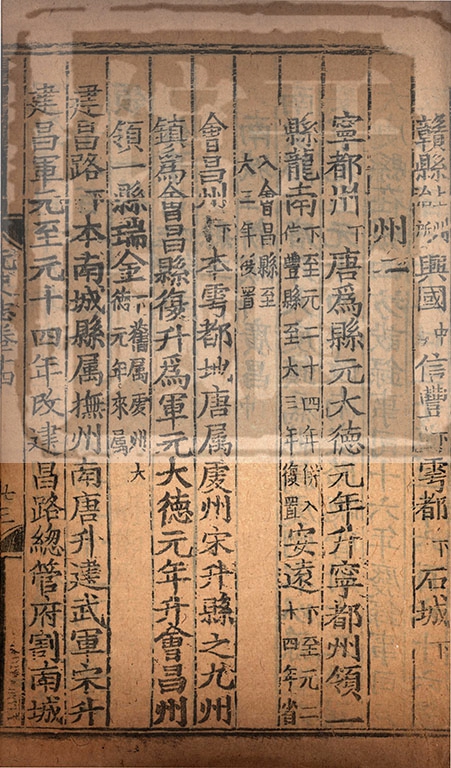 贛縣 興國中 信豐下 雩都下 石城下
州二
寧都州下 唐爲縣元大德元年升寧都州領一
縣龍南下至元二十四年併入信豐縣至大三年復置 安遠下至元二十四年省入會昌縣至大三年復置
會昌州下 本雩都地唐属虔州宋升縣之九州
鎮爲會昌縣復升爲軍元大德元年升會昌州
領一縣瑞金下舊属虔州大德元年來属
建昌路下 本南城縣属撫州南唐升建武軍宋升
建昌軍元至元十四年改建昌路總管府割南城